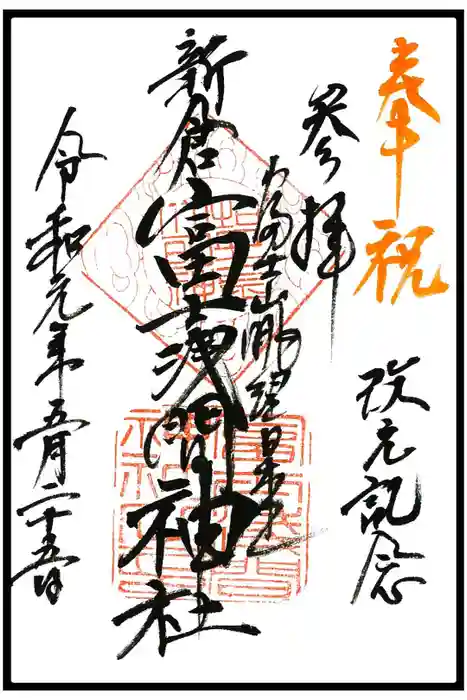 奉祝
改元記念
参拝
富士山眺望日本一
新倉富士浅間神社
令和元年五月二十五日